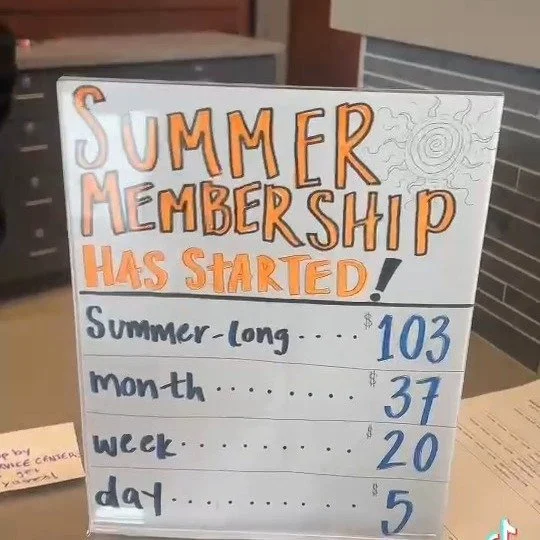 SUMMER
MEMBERSHIP
HAS STARTED!
Summer-long .... $103
month ........ $37
week .......... $20
day .......... $5
p by
VICE CENTER